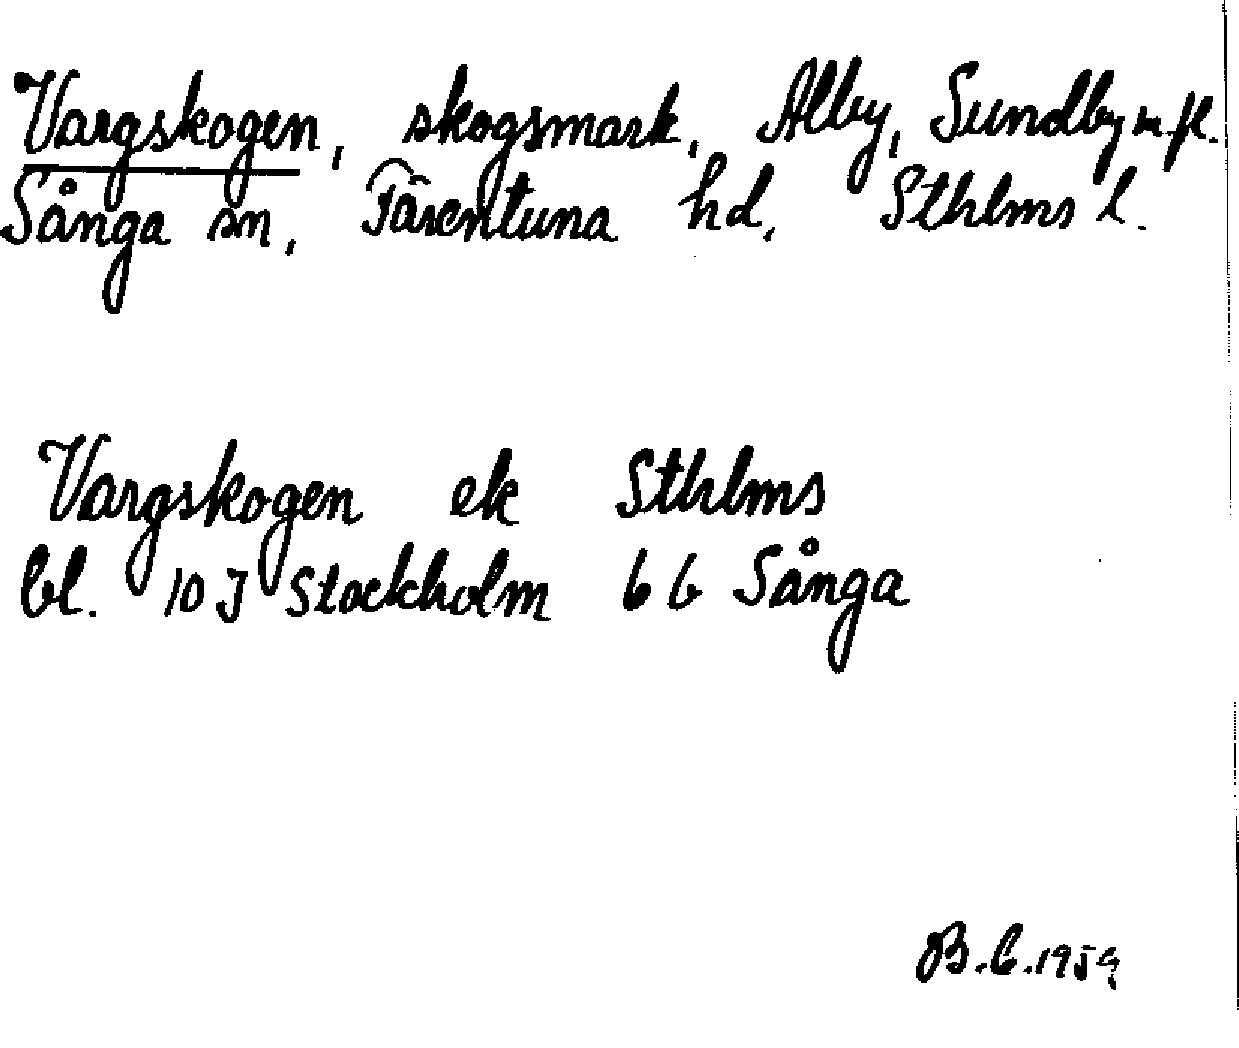 Vargskogen, skogsmark, Alby, Sundby m.fl.
Sånga sn, Färentuna hd, Sthlms l.
Vargskogen ek Sthlms
bl. 10 J Stockholm 6 b Sånga
B.C. 1959